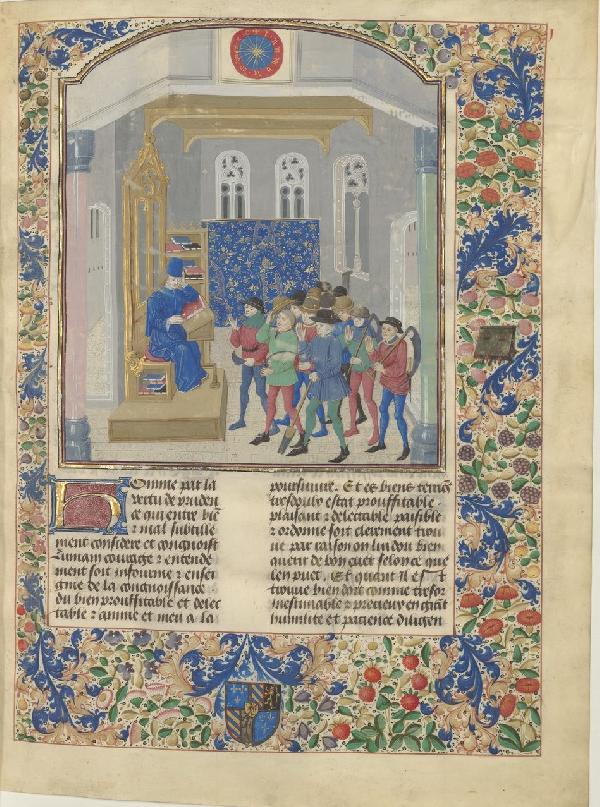 Comme par la
vertu de pruden
ce qui entre bie
et mal subtille
ment considere et congnoist
humain couraige et entende
ment soit informe et ensei
gne de la congnoissance
du bien prouffitable et delec
table et anime et meu a la
poursuiuir. Et ces biens
estat prouffitable
plaisant et delectable paisible
et ordonne soit clerement trou
ue par raison ou lindon bien
de bon cuer selonce que
len puet. Et quant il est
trouue bien doit comme tresor
inestimable et precieux en grant
humilite et pacience diligen